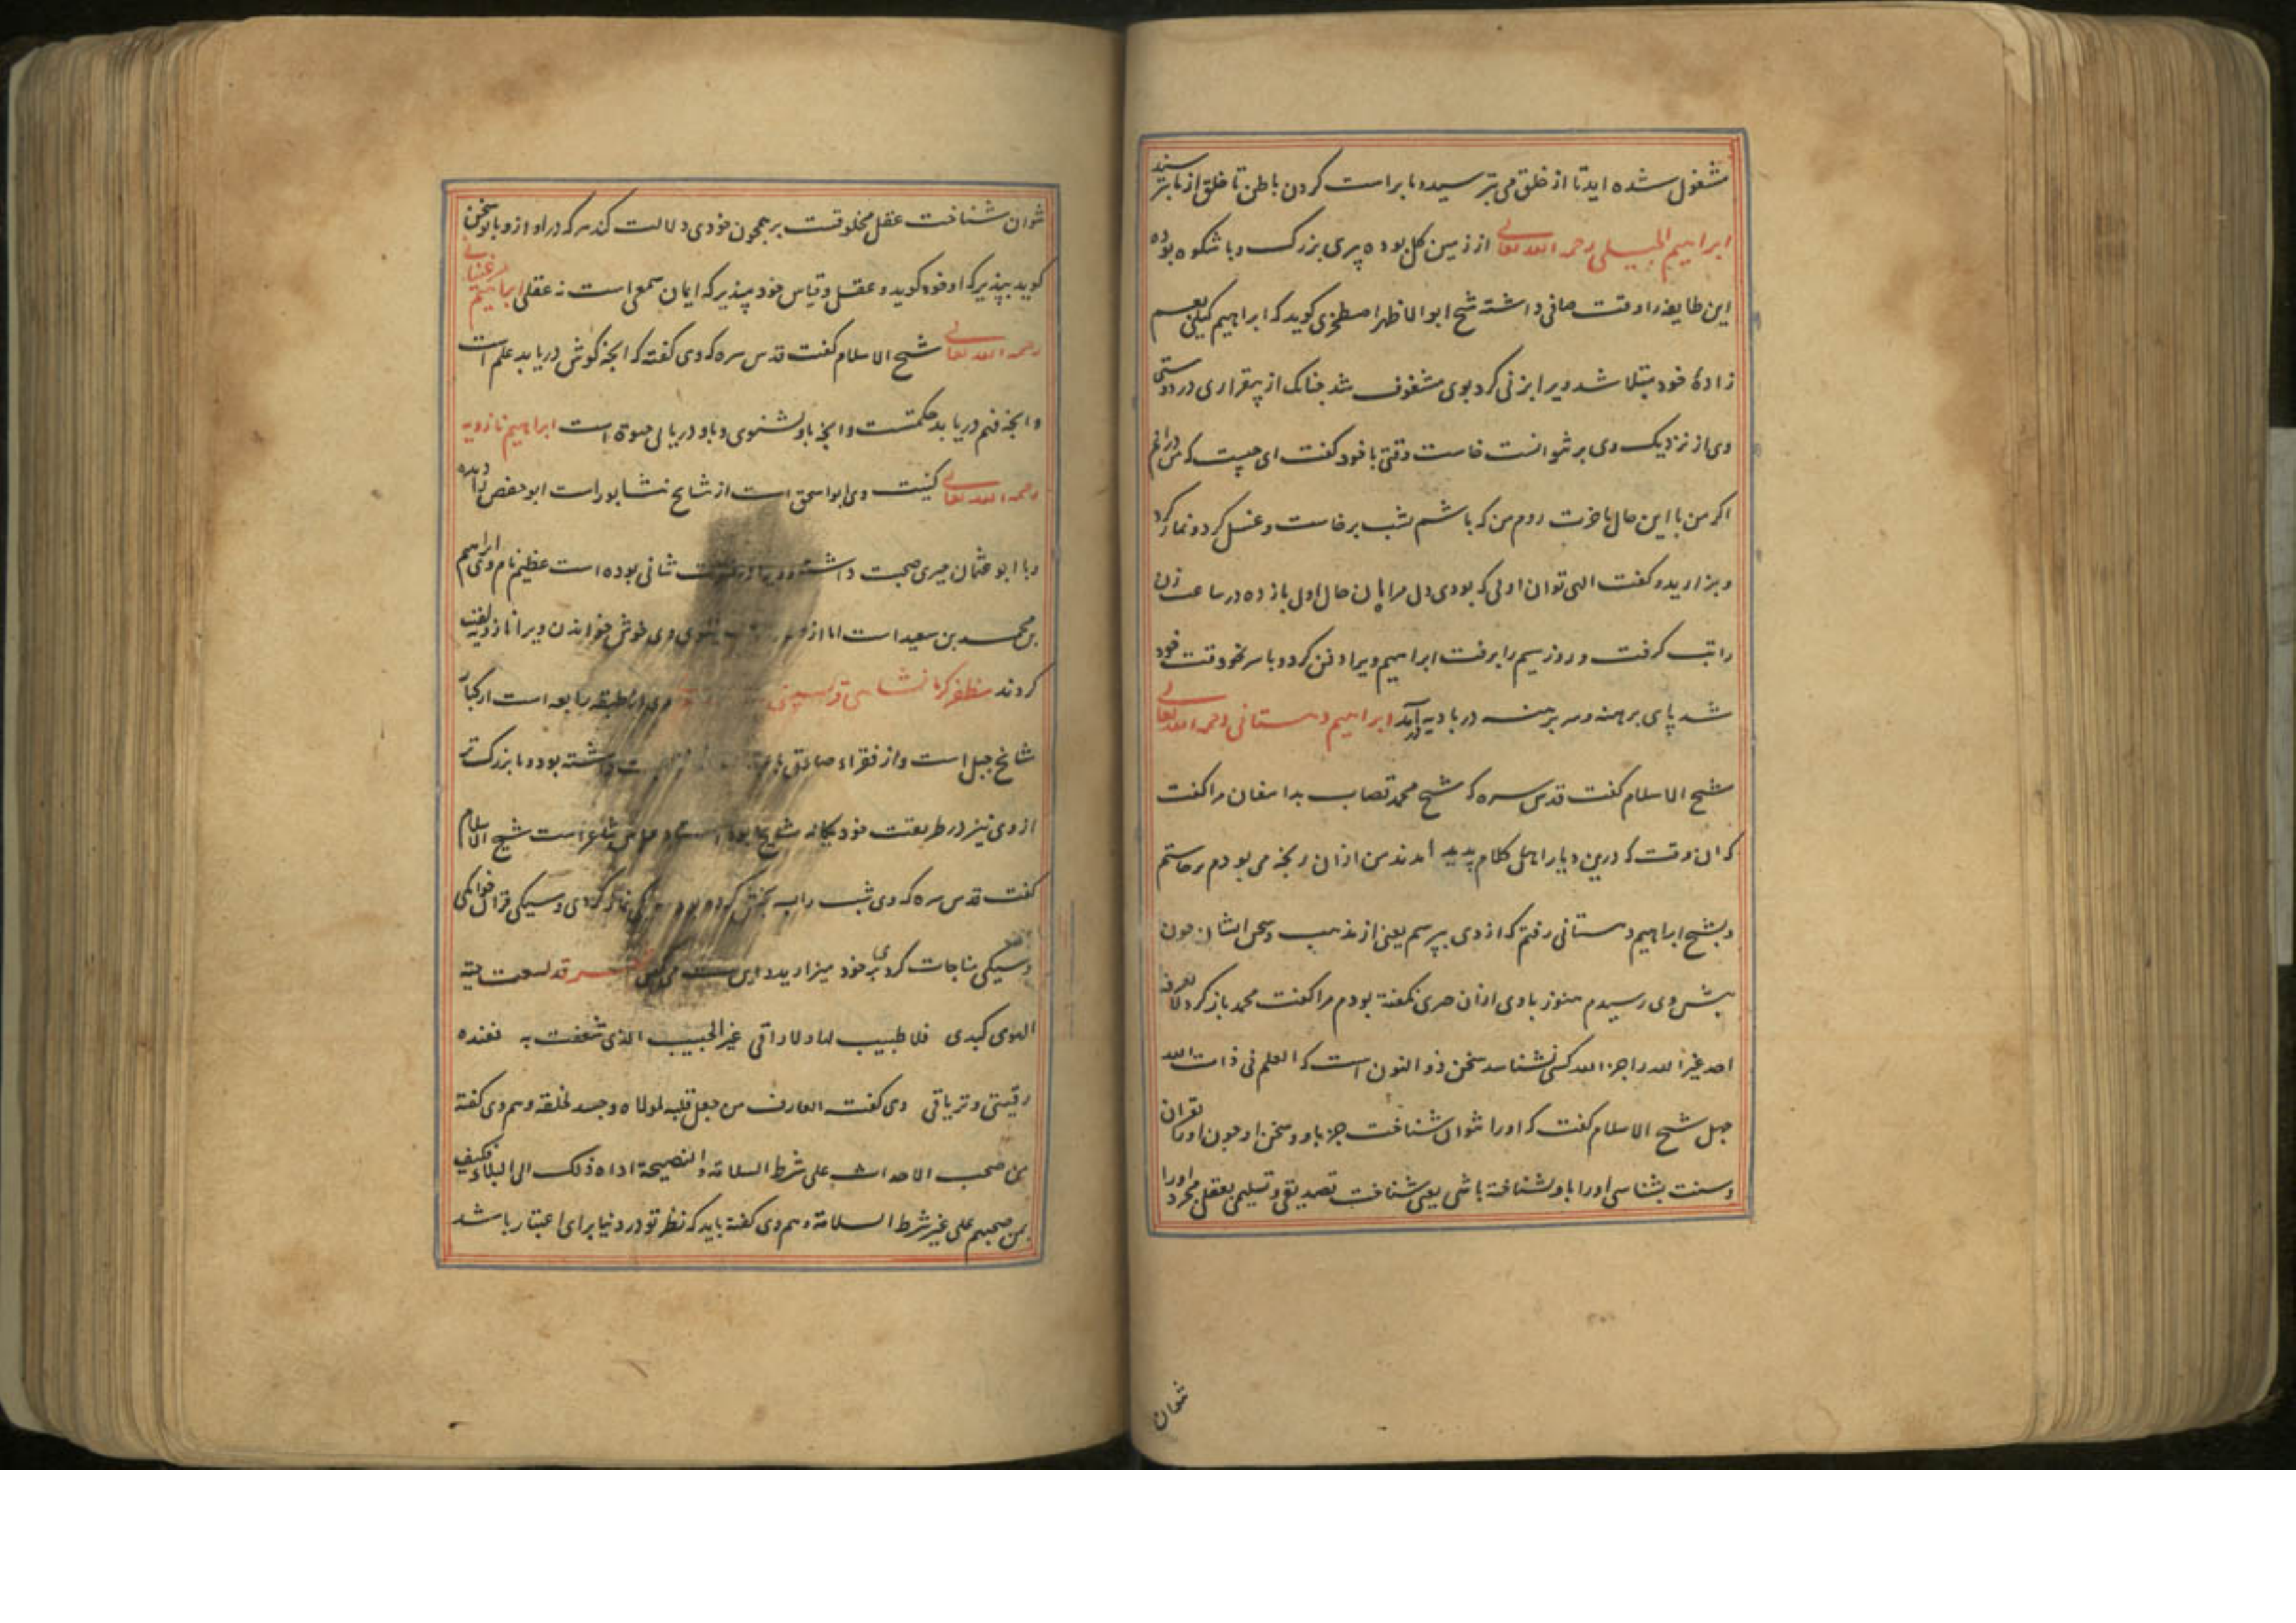 مشغول شده اید تا از خلق می بترسید و ما براست کردن باطن تا خلق از ما بترسند
ابراهیم الجیلی رحمه الله تعالی از زمین کل بوده پیری بزرک و با شکوه بوده
این طایفه را وقت صافی داشته شیخ ابو الاظهر اصطخری کوید که ابراهیم کیلی بعم
زادۀ خود مبتلا شد ویرا بزنی کرد بوی مشغوف شد جنانک از بیقراری در دوستی
وی از نزدیک وی بر نتوانست خاست وقتی با خود کفت ای جیست که من درانم
اکر من با این حال باخرت روم من که باشم بشب برخاست و غسل کرد و نماز کرد
و بزارید و کفت الهی توان اولی که بودی دل مرا بان حال اول باز ده در ساعت زن
را تب کرفت و روز سیم را برفت ابراهیم ویرا دفن کرد و با سر نخو وقت خود
شد پای برهنه و سر برهنه در بادیه در آمد ابراهیم دهستانی رحمه الله تعالی
شیخ الاسلام کفت قدس سره که شیخ محمد قصاب بدامغان مرا کفت
که ان وقت که درین دیار اهل کلام پدید آمدند من ازان رنجه می بودم برخاستم
و بشیخ ابراهیم دهستانی رفتم که از وی بپرسم یعنی از مذهب و سخن ایشان جون
بیش وی رسیدم هنوز با وی ازان حرفی نکفته بودم مرا کفت محمد باز کرد لا یعرفه
احد غیر الله را جز الله کسی نشناسد سخن ذو النون است که العلم فی ذات الله
جهل شیخ الاسلام کفت که او را نتوان شناخت جز باو و سخن او جون او را بقران
و سنت بشناسی او را باو شناخته باشی یعنی شناخت تصدیقی و تسلیمی بعقل مجرد او را
نتوان
نتوان شناخت عقل مخلوقست بر همجون خودی دلالت کند هر که در او از و باو سخن
کوید بپذیر که او خود کوید و عقل و قیاس خود مپذیر که ایمان سمعی است نه عقلی ابراهیم مرغینانی
رحمه الله تعالی شیخ الاسلام کفت قدس سره که وی کفته که انجه کوش دریابد علم است
و انجه فهم دریابد حکمتست و انجه باو بشنوی و باو دریابی حیوة است ابراهیم نازویه
رحمه الله تعالی کنیت وی ابو اسحق است از مشایخ نشابور است ابو حفص را دیده
و با ابو عثمان حیری صحبت داشته و ویرا در فتوت شانی بوده است عظیم نام وی ابراهیم
بن محمد بن سعید است اما از وی خوش خواندن ویرا نازویه لقب
کردند مظفر کرمانشاهی قرمیسینی وی از طبقه رابعه است از کبار
مشایخ جبل است و از فقراء صادق با داشته بود و با بزرک تر
از وی نیز در طریقت خود یکانه مشایخ بود استاد عباس شاعر است شیخ الاسلام
کفت قدس سره که وی شب را سه بخش کرده بود سیکی نماز کردی و سیکی قران خواندی
و سیکی مناجات کردی بر خود میزارید و این بیت می کفتی شعر قد لسعت حیة
الهوی کبدی فلا طبیب لها ولا راقی غیر الحبیب الذی شغفت به فعنده
رقیتی و تریاقی وی کفت العارف من جعل قلبه لمولاه وجسد لخلقه و هم وی کفته
من صحب الاحداث علی شرط السلامة والنصیحة اداه ذلک الی البلاء فکیف
بمن صحبهم علی غیر شرط السلامة و هم وی کفته باید که نظر تو در دنیا برای اعتبار باشد